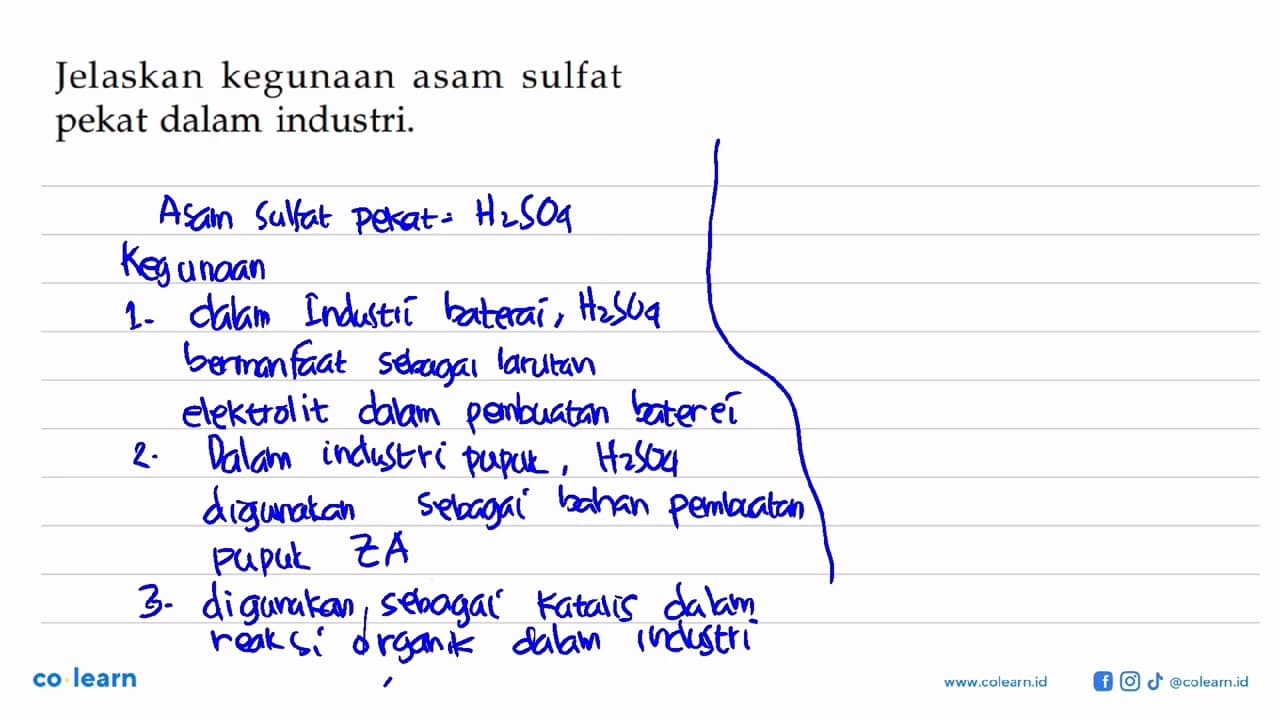 Jelaskan kegunaan asam sulfat
pekat dalam industri.
Asam sulfat pekat = H₂SO₄
Kegunaan
1. dalam Industri baterai, H₂SO₄
bermanfaat sebagai larutan
elektrolit dalam pembuatan baterei
2. Dalam industri pupuk, H₂SO₄
digunakan sebagai bahan pembuatan
pupuk ZA
3. digunakan, sebagai katalis dalam
reaksi organik dalam industri
co learn
www.colearn.id
@colearn.id